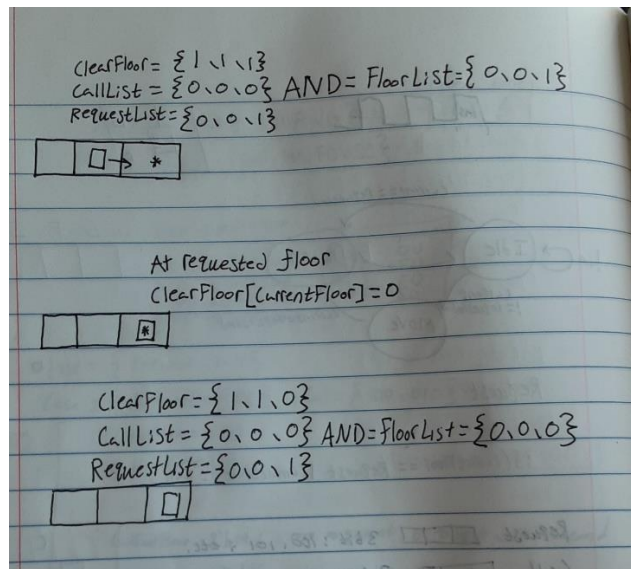 ClearFloor = {1, 1, 1}
CallList = {0, 0, 0} AND = FloorList = {0, 0, 1}
RequestList = {0, 0, 1}
*
At requested floor
ClearFloor[CurrentFloor] = 0
*
ClearFloor = {1, 1, 0}
CallList = {0, 0, 0} AND = FloorList = {0, 0, 0}
RequestList = {0, 0, 1}